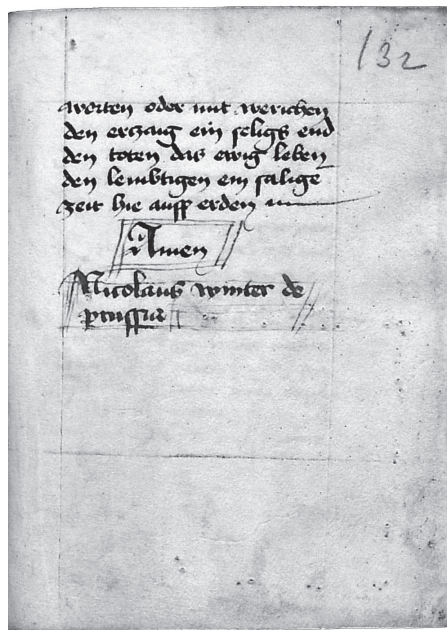 132
worten oder mit werichen
den erzaig ein seligs end
den toten das ewig leben
den lembtigen ein salige
zeit hie auff erden
Amen
Nicolaus winter de
prussia